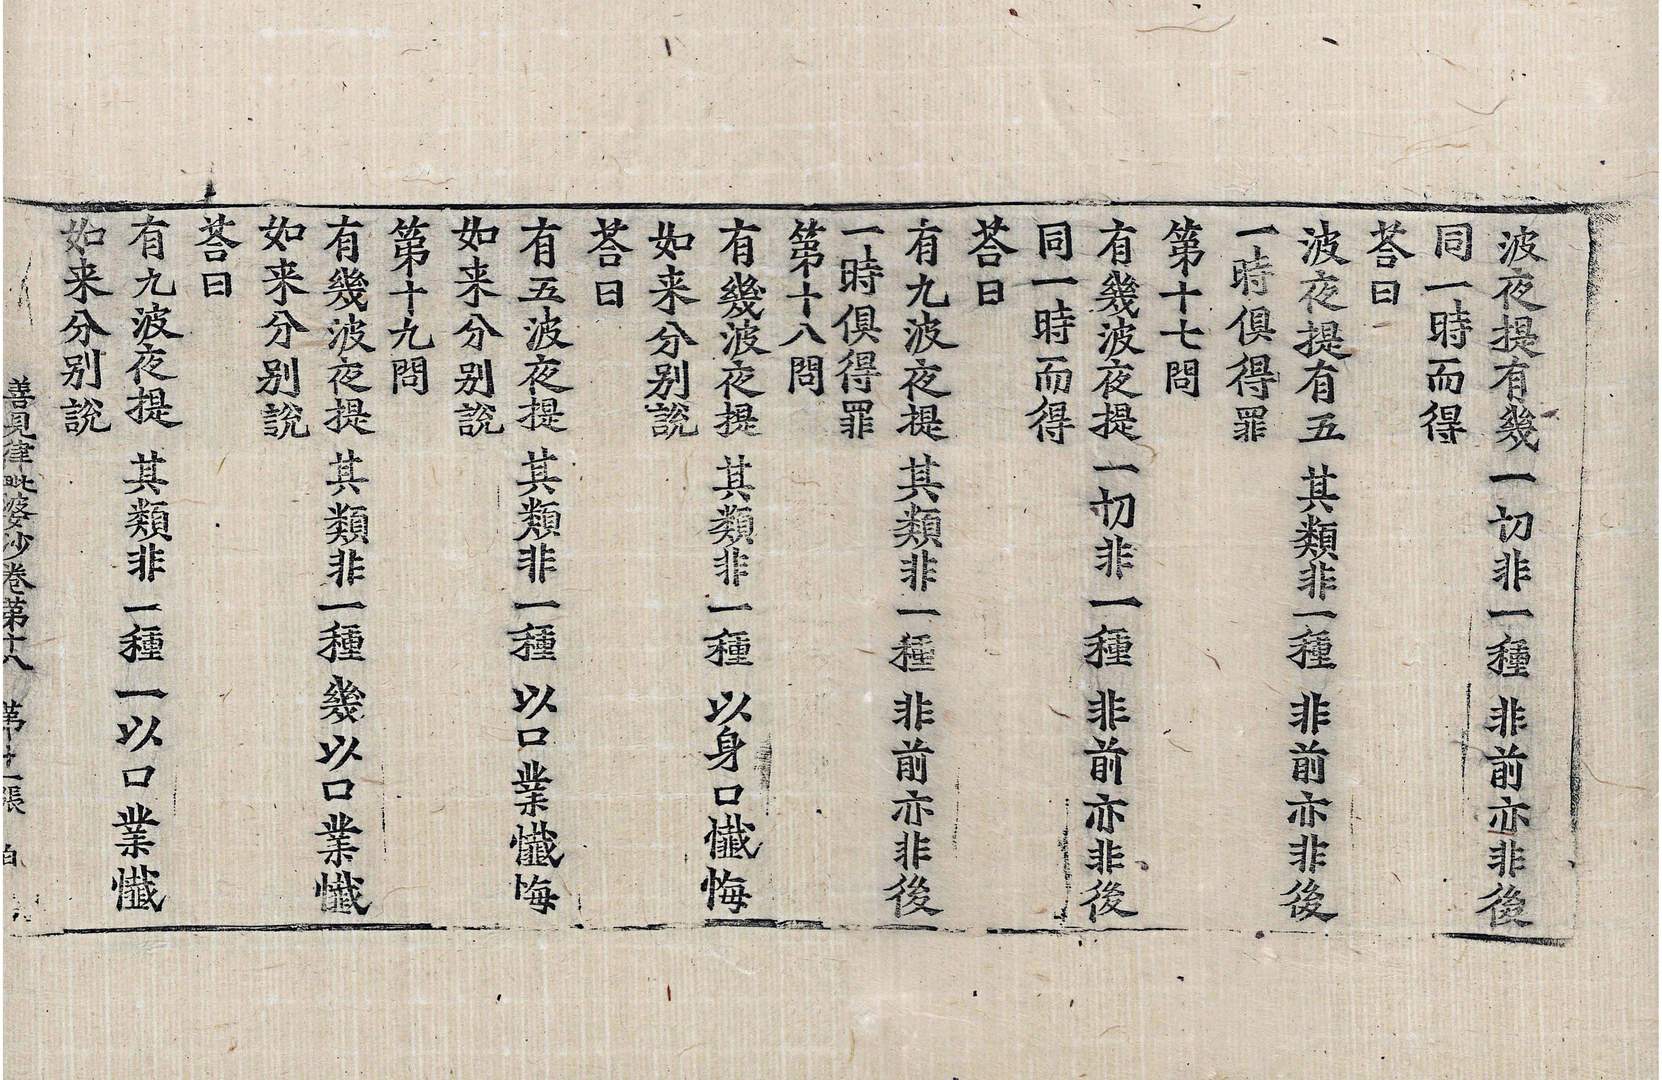 波夜提有幾 一切非一種 非前亦非後
同一時而得
荅曰
波夜提有五 其類非一種 非前亦非後
一時俱得罪
第十七問
有幾波夜提 一切非一種 非前亦非後
同一時而得
荅曰
有九波夜提 其類非一種 非前亦非後
一時俱得罪
第十八問
有幾波夜提 其類非一種 以身口懺悔
如来分别說
荅曰
有五波夜提 其類非一種 以口業懺悔
如来分别說
第十九問
有幾波夜提 其類非一種 幾以口業懺
如来分别說
荅曰
有九波夜提 其類非一種 一以口業懺
如来分别說
善見律毗婆沙卷第十八 第廿一張 伯